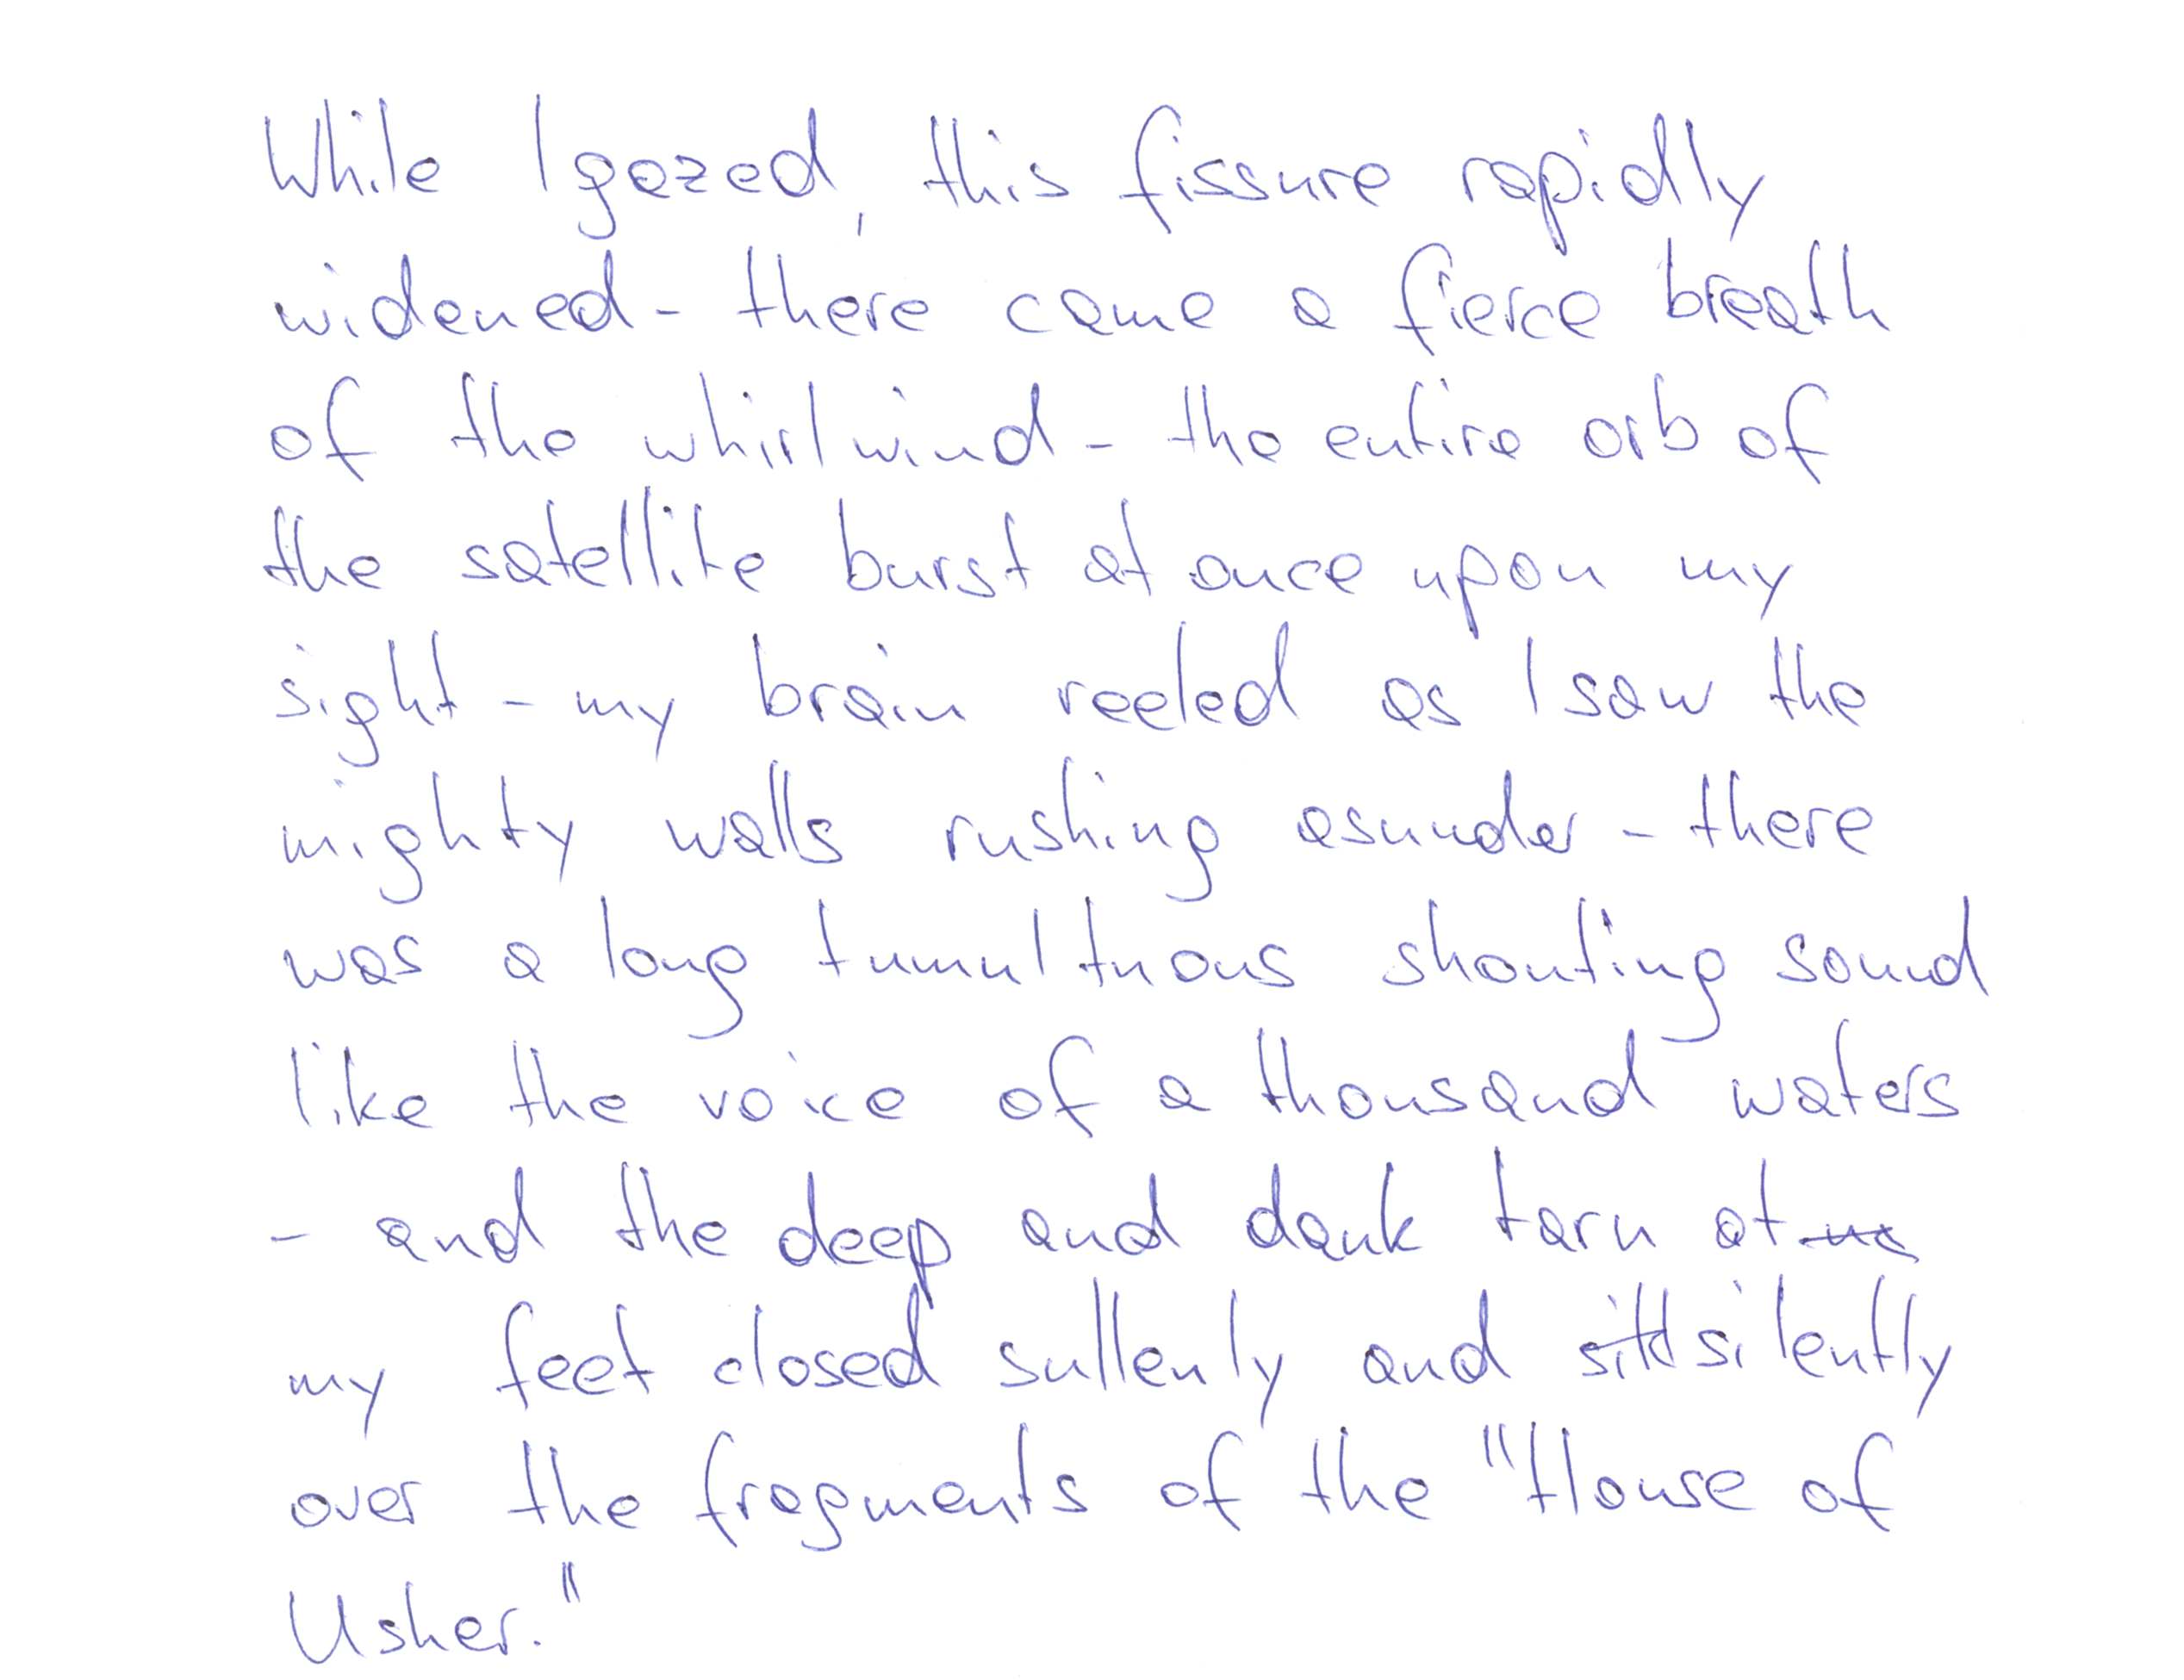 While I gazed, this fissure rapidly
widened - there came a fierce breath
of the whirlwind - the entire orb of
the satellite burst at once upon my
sight - my brain reeled as I saw the
mighty walls rushing asunder - there
was a long tumultuous shouting sound
like the voice of a thousand waters
- and the deep and dank tarn at
my feet closed sullenly and silently
over the fragments of the "House of
Usher."